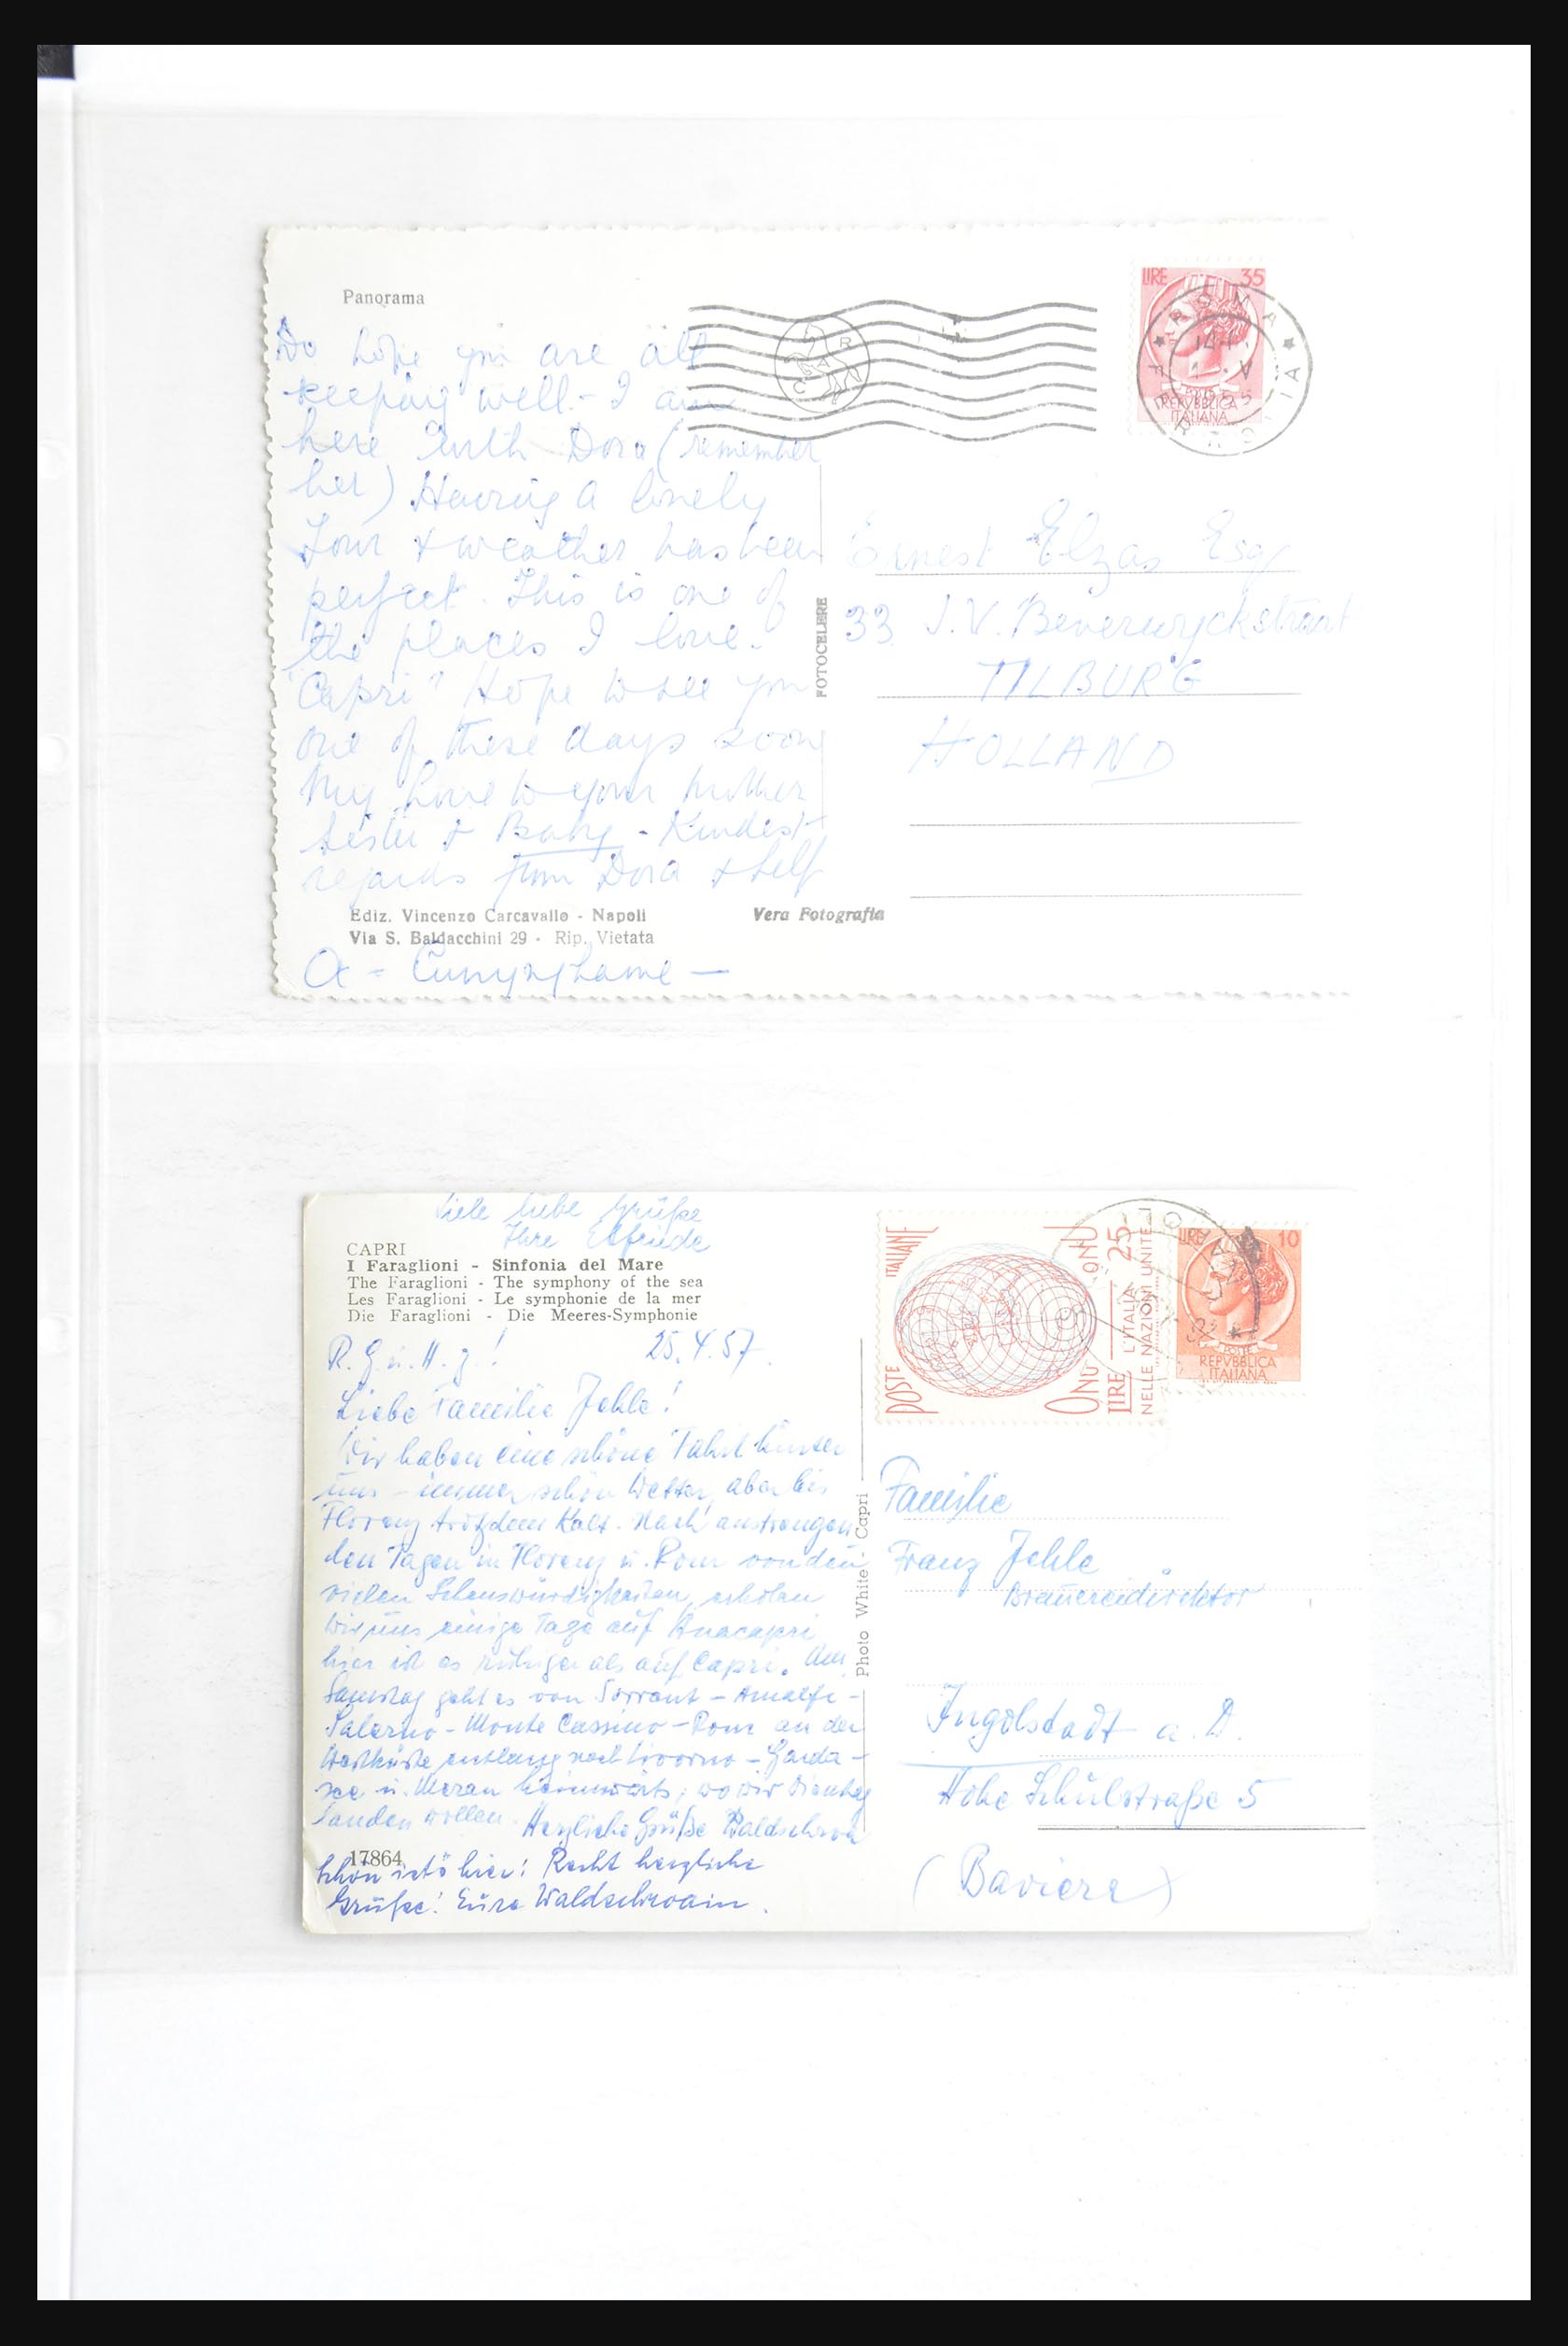 Panorama
Do hope you are all
keeping well - I am
here with Dora (remember
her) Having a lovely
Tour & weather has been
perfect. This is one of
the places I love.
"Capri" Hope to see you
one of these days soon
My love to your mother
sister & Baby - Kindest
regards from Dora & self
Ediz. Vincenzo Carcavallo - Napoli
Via S. Baldacchini 29 - Rip. Vietata
Vera Fotografia
A - Cunynghame -
FOTOCELERE
R A C
LIRE 35
REPVBBLICA
ITALIANA
ROMA
Ernest Elzas Esq
33 J.V. Beverwyckstraat
TILBURG
HOLLAND
Viele liebe Grüße
Ihre Elfriede
CAPRI
I Faraglioni - Sinfonia del Mare
The Faraglioni - The symphony of the sea
Les Faraglioni - Le symphonie de la mer
Die Faraglioni - Die Meeres-Symphonie
25.4.57.
Liebe Familie Jehle!
Wir haben eine schöne Fahrt hinter
uns - immer schön Wetter, aber bis
Florenz trotzdem kalt. Nach anstrengen
den Tagen in Florenz u. Rom von den
vielen Sehenswürdigkeiten, erholen
wir uns einige Tage auf Anacapri
hier ist es ruhiger als auf Capri. Am
Samstag geht es von Sorrent - Amalfi -
Salerno - Monte Cassino - Rom an der
Westküste entlang nach Livorno - Garda-
see u. Meran heimwärts, wo wir Dienstag
landen wollen. Herzliche Grüße Waldschwain
17864
Schön ist's hier! Recht herzliche
Grüße! Eure Waldschwain.
Photo White Capri
POSTE ITALIANE
ONU ONU
LIRE 25
L'ITALIA
NELLE NAZIONI UNITE
LIRE 10
POSTE
REPVBBLICA
ITALIANA
Familie
Franz Jehle
Brauereidirektor
Ingolstadt a. D.
Hohe Schulstraße 5
(Baviera)